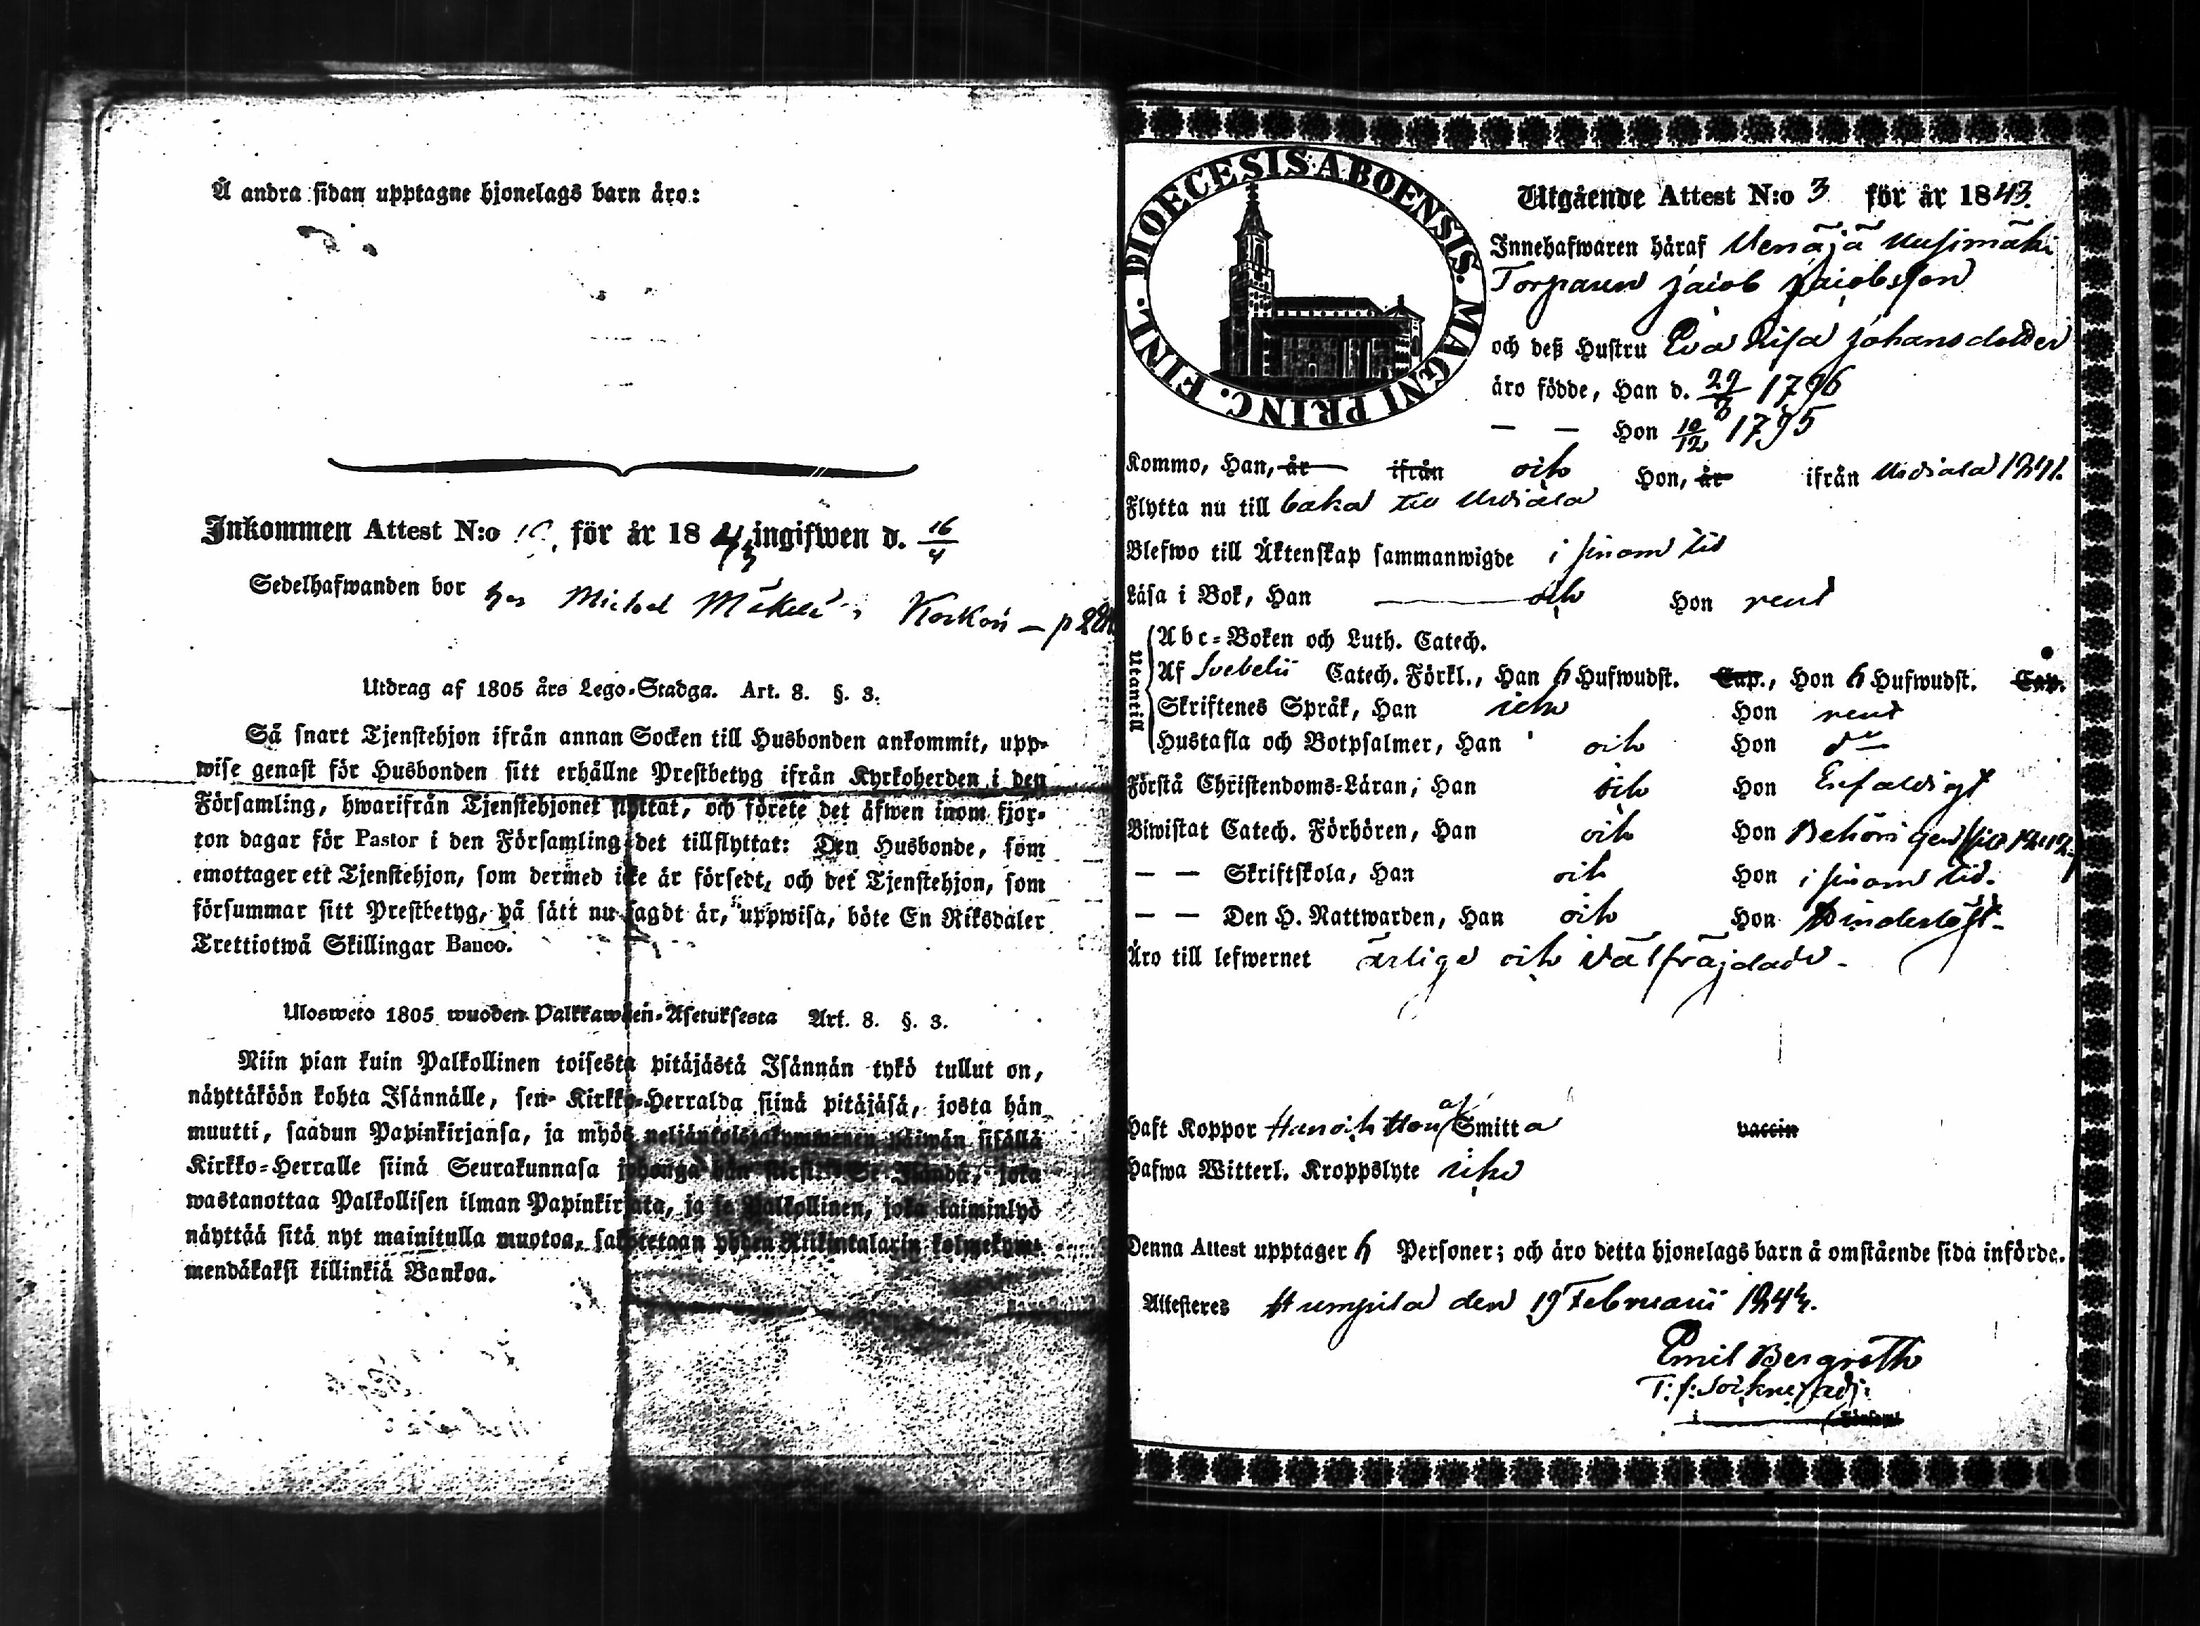 Å andra sidan upptagne hjonelags barn äro:
Inkommen Attest N:o för år 1843 ingifwen d. 16/4
Sedelhafwanden bor hos Michel Mäkelä
Utdrag af 1805 års Lego-Stadga. Art. 8. §. 3.
Så snart Tjenstehjon ifrån annan Socken till Husbonden ankommit, upp-
wise genast för Husbonden sitt erhållne Prestbetyg ifrån Kyrkoherden i den
Församling, hwarifrån Tjenstehjonet flyttat, och förete det äfwen inom fjor-
ton dagar för Pastor i den Församling det tillflyttat: Den Husbonde, som
emottager ett Tjenstehjon, som dermed icke är försedt, och det Tjenstehjon, som
försummar sitt Prestbetyg, på sätt nu sagdt är, uppwisa, böte En Riksdaler
Trettiotwå Skillingar Banco.
Ulosweto 1805 wuoden Palkkawäen-Asetuksesta Art. 8. §. 3.
Niin pian kuin Palkollinen toisesta pitäjästä Isännän tykö tullut on,
näyttäköön kohta Isännälle, sen Kirkko-Herralda siinä pitäjäsä, josta hän
muutti, saadun Papinkirjansa, ja myös neljäntoistakymmenen päiwän sisällä
Kirkko-Herralle siinä Seurakunnasa johonga hän siirsi: Se Isändä, joka
wastanottaa Palkollisen ilman Papinkirjata, ja se Palkollinen, joka laiminlyö
näyttää sitä nyt mainitulla muotoa, sakotetaan yhden Riikintalarin kolmekym-
mendäkaksi killinkiä Bankoa.
DIOECESIS ABOENSIS. MAGNI PRINC. FINL.
Utgående Attest N:o 3 för år 1843.
Innehafwaren häraf Venäjä Uusimäki
Torparen Jacob Jacobsson
och deß Hustru Eva Lisa Johansdotter
äro födde, Han d. 29/3 1796
— — Hon 10/12 1795
Kommo, Han, år ifrån och Hon, år ifrån Urdiala 1841.
Flytta nu till baka till Urdiala
Blefwo till Äktenskap sammanwigde i sinom tid
Läsa i Bok, Han och Hon rent
Utantill
Abc-Boken och Luth. Catech.
Af Svebelii Catech. Förkl., Han 6 Hufwudst. Cap., Hon 6 Hufwudst. Cap.
Skriftenes Språk, Han och Hon rent
Hustafla och Botpsalmer, Han och Hon do
Förstå Christendoms-Läran, Han och Hon Enfaldigt
Biwistat Catech. Förhören, Han och Hon Behörigen
— — Skriftskola, Han och Hon i sinom tid.
— — Den H. Nattwarden, Han och Hon hinderlöst.
Äro till lefwernet ärlige och välfräjdade.
Haft Koppor Han och Hon af Smitta vaccin
Hafwa Witterl. Kroppslyte icke
Denna Attest upptager 6 Personer; och äro detta hjonelags barn å omstående sida införde.
Attesteres Humppila den 19 Februarii 1844.
Emil Bergroth
T. f. Sockneadj:
i Församl